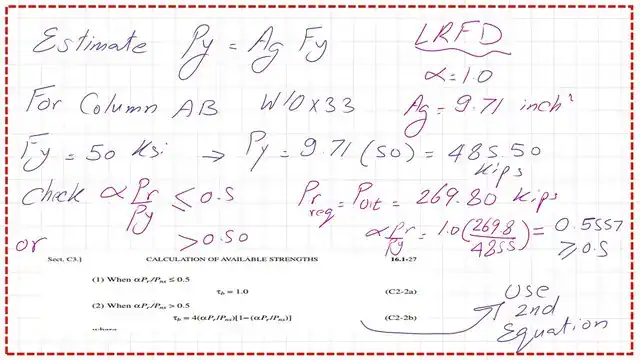 Estimate Py = Ag Fy LRFD
α = 1.0
For Column AB W10x33 Ag = 9.71 inch²
Fy = 50 Ksi → Py = 9.71 (50) = 485.50 Kips
Check α Pr/Py ≤ 0.5 Pr req = Pult = 269.80 Kips
or > 0.50 α Pr/Py = 1.0 (269.8/485.5) = 0.5557 ≥ 0.5
Sect. C3.] CALCULATION OF AVAILABLE STRENGTHS 16.1-27
(1) When αPr/Pns ≤ 0.5
τb = 1.0 (C2-2a)
(2) When αPr/Pns > 0.5
τb = 4(αPr/Pns)[1−(αPr/Pns)] (C2-2b)
where
Use
2nd
Equation